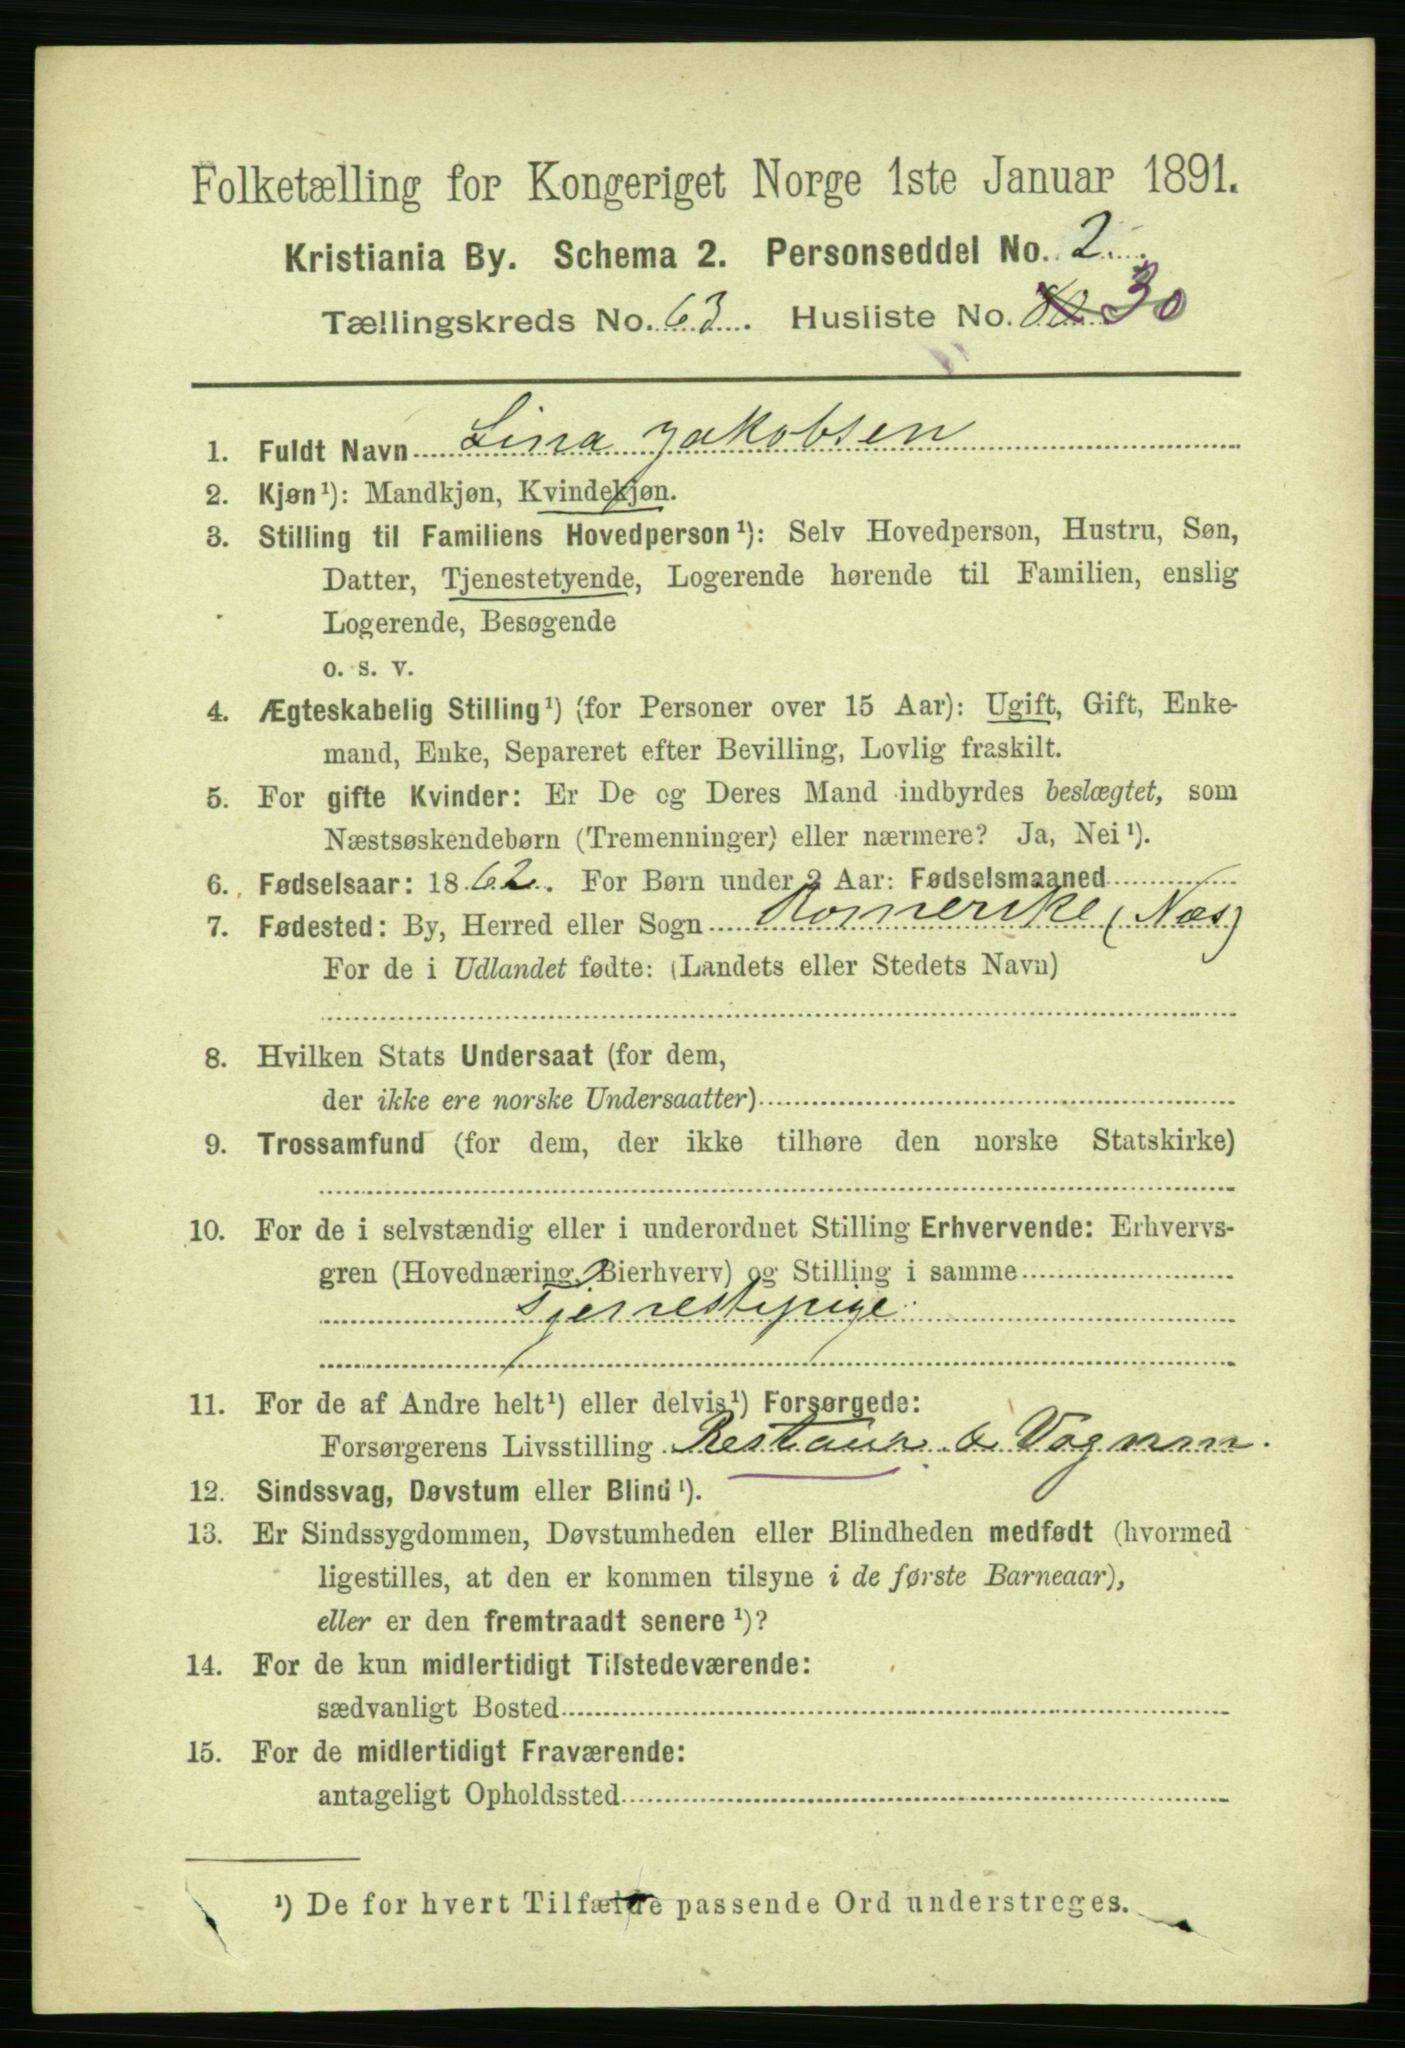 Folketælling for Kongeriget Norge 1ste Januar 1891.
Kristiania By. Schema 2. Personseddel No. 2.
Tællingskreds No. 63. Husliste No. 30
1. Fuldt Navn Lina Jakobsen
2. Kjøn¹): Mandkjøn, Kvindekjøn.
3. Stilling til Familiens Hovedperson¹): Selv Hovedperson, Hustru, Søn,
Datter, Tjenestetyende, Logerende hørende til Familien, enslig
Logerende, Besøgende
o. s. v.
4. Ægteskabelig Stilling¹) (for Personer over 15 Aar): Ugift, Gift, Enke-
mand, Enke, Separeret efter Bevilling, Lovlig fraskilt.
5. For gifte Kvinder: Er De og Deres Mand indbyrdes beslægtet, som
Næstsøskendebørn (Tremenninger) eller nærmere? Ja, Nei¹).
6. Fødselsaar: 1862. For Børn under 2 Aar: Fødselsmaaned
7. Fødested: By, Herred eller Sogn Romerike (Næs)
For de i Udlandet fødte: (Landets eller Stedets Navn)
8. Hvilken Stats Undersaat (for dem,
der ikke ere norske Undersaatter)
9. Trossamfund (for dem, der ikke tilhøre den norske Statskirke)
10. For de i selvstændig eller i underordnet Stilling Erhvervende: Erhvervs-
gren (Hovednæring, Bierhverv) og Stilling i samme
Tjenestepige
11. For de af Andre helt¹) eller delvis¹) Forsørgede:
Forsørgerens Livsstilling Restaur. & Vognm.
12. Sindssvag, Døvstum eller Blind¹).
13. Er Sindssygdommen, Døvstumheden eller Blindheden medfødt (hvormed
ligestilles, at den er kommen tilsyne i de første Barneaar),
eller er den fremtraadt senere¹)?
14. For de kun midlertidigt Tilstedeværende:
sædvanligt Bosted
15. For de midlertidigt Fraværende:
antageligt Opholdssted
¹) De for hvert Tilfælde passende Ord understreges.